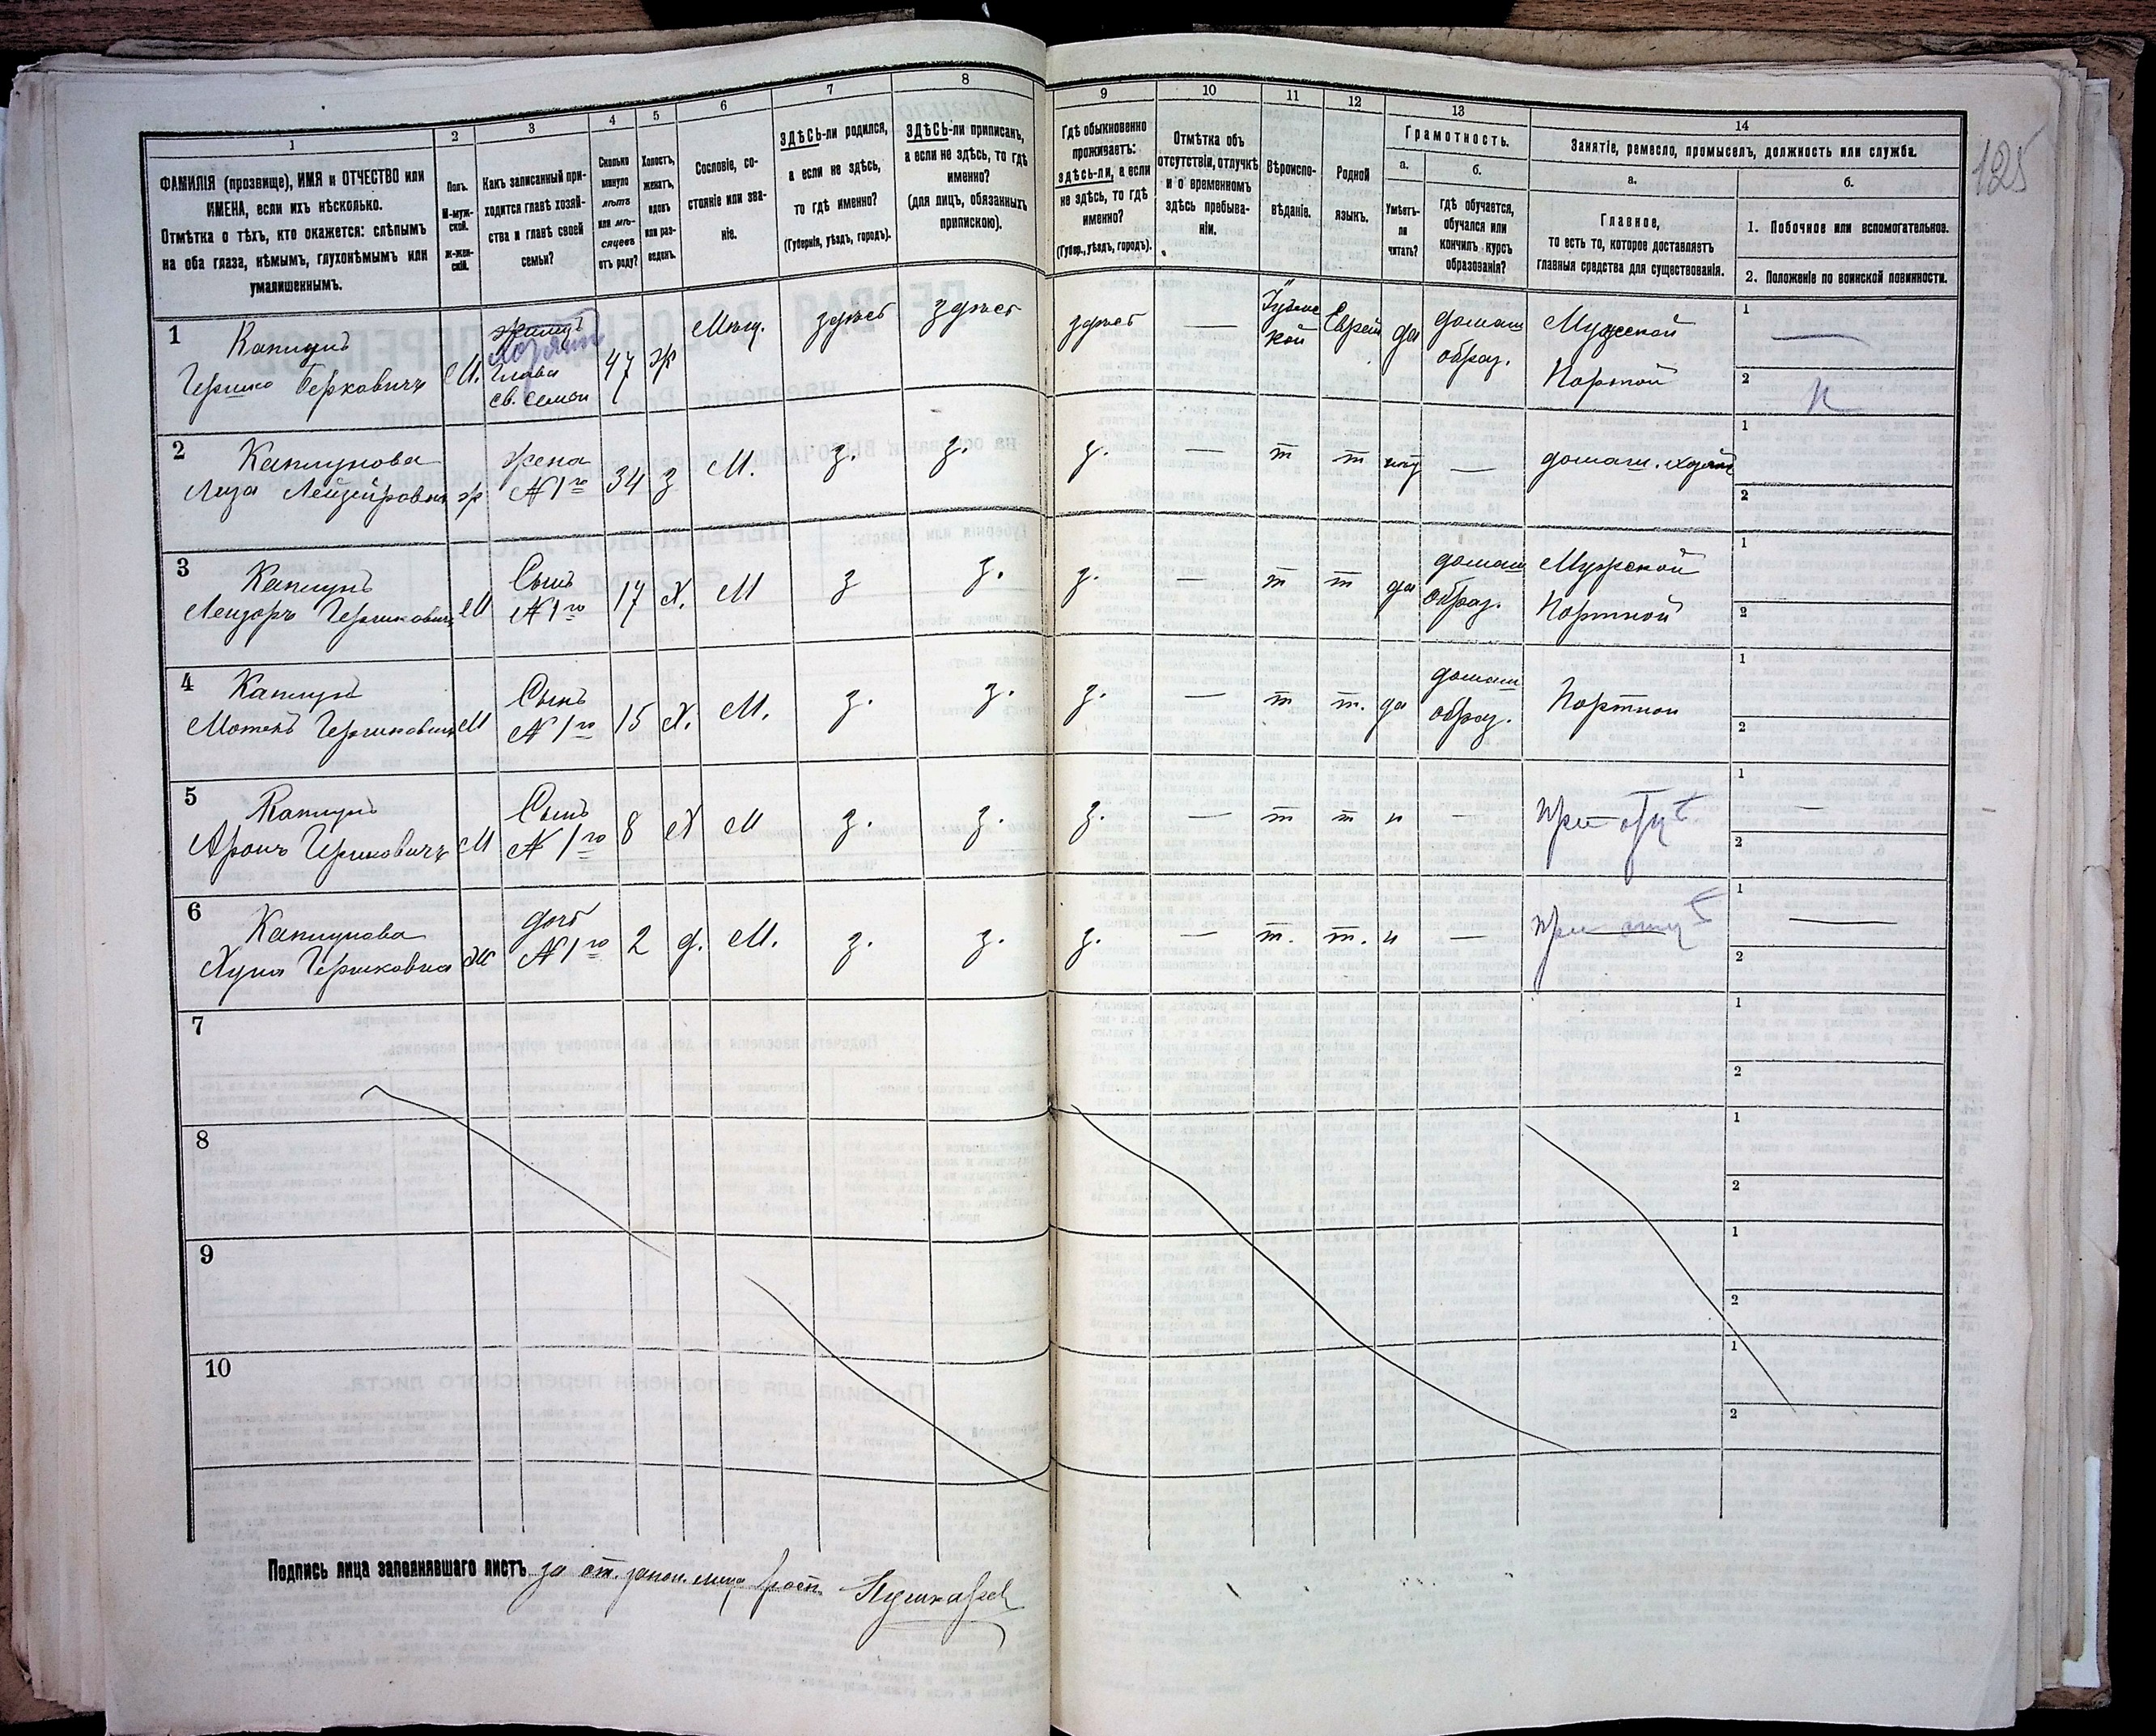 125
1 2 3 4 5 6 7 8 9 10 11 12 13 14
ФАМИЛІЯ (прозвище), ИМЯ и ОТЧЕСТВО или
ИМЕНА, если ихъ нѣсколько.
Отмѣтка о тѣхъ, кто окажется: слѣпымъ
на оба глаза, нѣмымъ, глухонѣмымъ или
умалишеннымъ.
Полъ.
М-муж-
ской.
Ж-жен-
скій.
Какъ записанный при-
ходится главѣ хозяй-
ства и главѣ своей
семьи?
Сколько
минуло
лѣтъ
или мѣ-
сяцевъ
отъ роду?
Холостъ,
женатъ,
вдовъ
или раз-
веденъ.
Сословіе, со-
стояніе или зва-
ніе.
ЗДѢСЬ-ли родился,
а если не здѣсь,
то гдѣ именно?
(Губернія, уѣздъ, городъ).
ЗДѢСЬ-ли приписанъ,
а если не здѣсь, то гдѣ
именно?
(для лицъ, обязанныхъ
припискою).
Гдѣ обыкновенно
проживаетъ:
здѣсь-ли, а если
не здѣсь, то гдѣ
именно?
(Губер., уѣздъ, городъ).
Отмѣтка объ
отсутствіи, отлучкѣ
и о временномъ
здѣсь пребыва-
ніи.
Вѣроиспо-
вѣданіе.
Родной
языкъ.
Грамотность.
а.
Умѣетъ-
ли
читать?
б.
гдѣ обучается,
обучался или
кончилъ курсъ
образованія?
Занятіе, ремесло, промыселъ, должность или служба.
а.
Главное,
то есть то, которое доставляетъ
главныя средства для существованія.
б.
1. Побочное или вспомогательное.
2. Положеніе по воинской повинности.
1 Капунъ
Гершко Берковичъ М. Хозяинъ
Глава
св. семьи 47 ж Мѣщ. здѣсь здѣсь здѣсь — Іудейс
кой Еврей да домаш
образ. Мужской
Портной 1 —
2
2
Лейзеровна ж жена
№ 1го 34 з М. з. з. з. — т т нѣт — домаш. хозяй 1
2
3 Капунъ
Гершковичъ М Сынъ
№ 1го 17 Х. М з з. з. — т т да домаш
образ. Мужской
Портной 1
2
4 Капунъ
Гершковичъ М Сынъ
№ 1го 15 Х. М. з. з. з. — т т. да домаш
образ. Портной 1
2
5 Капунъ
Аронъ Гершковичъ М Сынъ
№ 1го 8 Х М з. з. з. — т т н — при отцѣ 1 —
2
6
Гершковна ж дочь
№ 1го 2 д. М. з. з. з. — т. т. н — при отцѣ 1 —
2
7 1
2
8 1
2
9 1
2
10 1
2
Подпись лица заполнявшаго листъ за от.